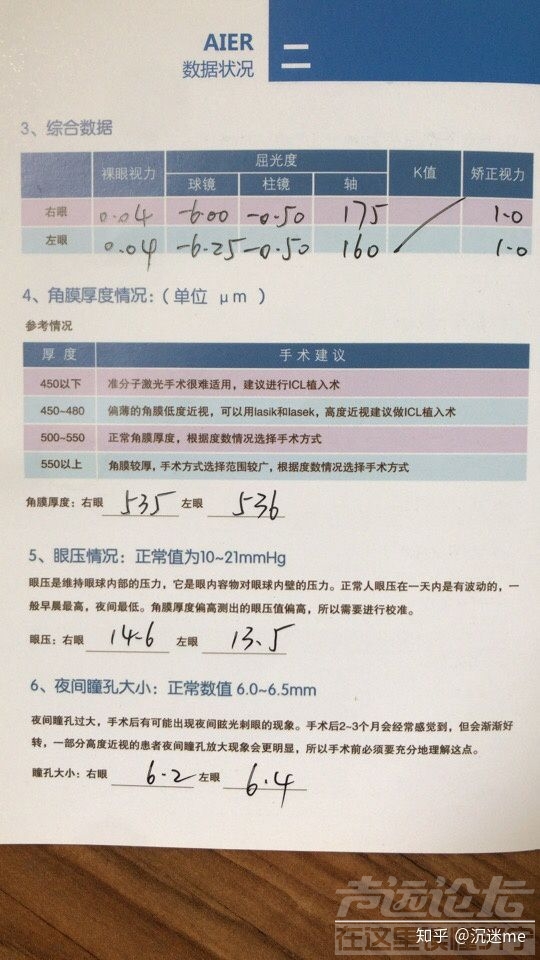 AIER
数据状况
二
3、综合数据
裸眼视力 屈光度 K值 矫正视力
球镜 柱镜 轴
右眼 0.04 -6.00 -0.50 175 1.0
左眼 0.04 -6.25 -0.50 160 1.0
4、角膜厚度情况：(单位 μm )
参考情况
厚 度 手 术 建 议
450以下 准分子激光手术很难适用，建议进行ICL植入术
450~480 偏薄的角膜低度近视，可以用lasik和lasek，高度近视建议做ICL植入术
500~550 正常角膜厚度，根据度数情况选择手术方式
550以上 角膜较厚，手术方式选择范围较广，根据度数情况选择手术方式
角膜厚度：右眼 535 左眼 536
5、眼压情况：正常值为10~21mmHg
眼压是维持眼球内部的压力，它是眼内容物对眼球内壁的压力。正常人眼压在一天内是有波动的，一
般早晨最高，夜间最低。角膜厚度偏高测出的眼压值偏高，所以需要进行校准。
眼压：右眼 14.6 左眼 13.5
6、夜间瞳孔大小：正常数值 6.0~6.5mm
夜间瞳孔过大，手术后有可能出现夜间眩光刺眼的现象。手术后2~3个月会经常感觉到，但会渐渐好
转，一部分高度近视的患者夜间瞳孔放大现象会更明显，所以手术前必须要充分地理解这点。
瞳孔大小：右眼 6.2 左眼 6.4
声远论坛
在这里读懂济宁
知乎 @沉迷me